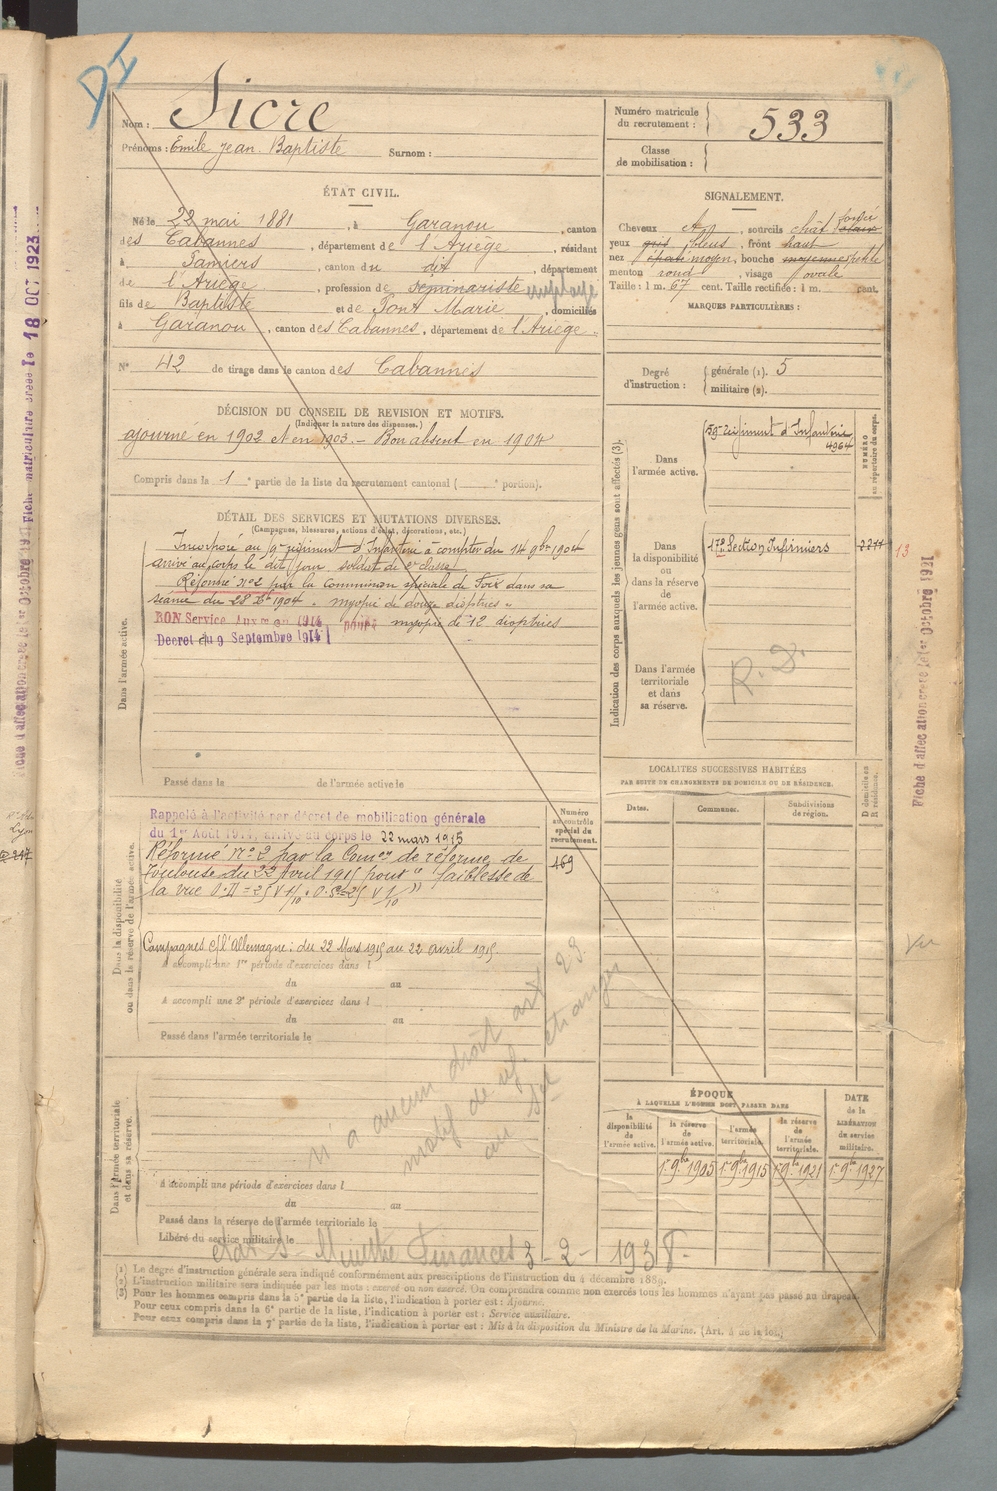 DI
Nom : Sicre
Prénoms : Emile Jean Baptiste Surnom :
Numéro matricule du recrutement : 533
Classe de mobilisation :
ÉTAT CIVIL.
Né le 22 mai 1881, à Garanou, canton
des Cabannes, département de l'Ariège, résidant
à Pamiers, canton du dit, département
de l'Ariège, profession de Séminariste employé
fils de Baptiste et de Pont Marie, domiciliés
à Garanou, canton des Cabannes, département de l'Ariège.
N° 42 de tirage dans le canton des Cabannes
SIGNALEMENT.
Cheveux, sourcils chât foncés clairs
yeux gris bleus, front haut
nez épaté moyen, bouche moyenne petite
menton rond, visage ovale
Taille : 1 m. 67 cent. Taille rectifiée : 1 m. cent.
MARQUES PARTICULIÈRES :
Degré d'instruction :
générale (1). 5
militaire (2).
DÉCISION DU CONSEIL DE REVISION ET MOTIFS.
(Indiquer la nature des dispenses.)
ajourné en 1902 et en 1903. – Bon absent en 1904
Compris dans la 1e partie de la liste du recrutement cantonal ( e portion).
DÉTAIL DES SERVICES ET MUTATIONS DIVERSES.
(Campagnes, blessures, actions d'éclat, décorations, etc.)
Dans l'armée active.
Incorporé au 59e régiment d'Infanterie à compter du 14 9bre 1904
arrivé au corps le dit jour, soldat de 2e classe
Réformé n° 2 par la Commission spéciale de Foix dans sa
séance du 28 Xbre 1904 "myopie de douze dioptries"
BON Service Auxre en 1914 myopie de 12 dioptries
Décret du 9 Septembre 1914
Passé dans la de l'armée active le
Dans la disponibilité ou dans la réserve de l'armée active.
Rappelé à l'activité par décret de mobilisation générale
du 1er Août 1914, arrivé au corps le 22 mars 1915
Réformé N° 2 par la Comon de réforme de
Toulouse du 22 Avril 1915 pour "faiblesse de
la vue
Campagnes c/ l'Allemagne : du 22 Mars 1915 au 22 avril 1915.
A accompli une 1re période d'exercices dans l
du au
A accompli une 2e période d'exercices dans l
du au
Passé dans l'armée territoriale le
Numéro au contrôle spécial du recrutement.
469
Dans l'armée territoriale et dans sa réserve.
n'a aucun droit art 23.
motif de
au étranger
A accompli une période d'exercices dans l
du au
Passé dans la réserve de l'armée territoriale le
Libéré du service militaire le
Ministre Finances 3-2-1938-
Indication des corps auxquels les jeunes gens sont affectés (3).
Dans l'armée active.
59e régiment d'Infanterie
4964
NUMÉRO au répertoire du corps.
Dans la disponibilité ou dans la réserve de l'armée active.
17e Section Infirmiers 2211 13
Dans l'armée territoriale et dans sa réserve.
R. D.
LOCALITÉS SUCCESSIVES HABITÉES
PAR SUITE DE CHANGEMENTS DE DOMICILE OU DE RÉSIDENCE.
Dates. Communes. Subdivisions de région. D domicile ou R résidence.
Vu
ÉPOQUE
À LAQUELLE L'HOMME DOIT PASSER DANS
la disponibilité de l'armée active.
la réserve de l'armée active.
l'armée territoriale.
la réserve de l'armée territoriale.
DATE de la LIBÉRATION du service militaire.
1er 9bre 1905 1er 9bre 1915 1er 9bre 1921 1er 9bre 1927
(1) Le degré d'instruction générale sera indiqué conformément aux prescriptions de l'instruction du 4 décembre 1889.
(2) L'instruction militaire sera indiquée par les mots : exercé ou non exercé. On comprendra comme non exercés tous les hommes n'ayant pas passé au drapeau.
(3) Pour les hommes compris dans la 5e partie de la liste, l'indication à porter est : Ajourné.
Pour ceux compris dans la 6e partie de la liste, l'indication à porter est : Service auxiliaire.
Pour ceux compris dans la 7e partie de la liste, l'indication à porter est : Mis à la disposition du Ministre de la Marine. (Art. 4 de la loi.)
Fiche d'affectation créée le 1er Octobre 1921
Fiche matriculaire créée le 18 OCT 1923
Fiche d'affectation créée le 1er Octobre 1921
Lyon